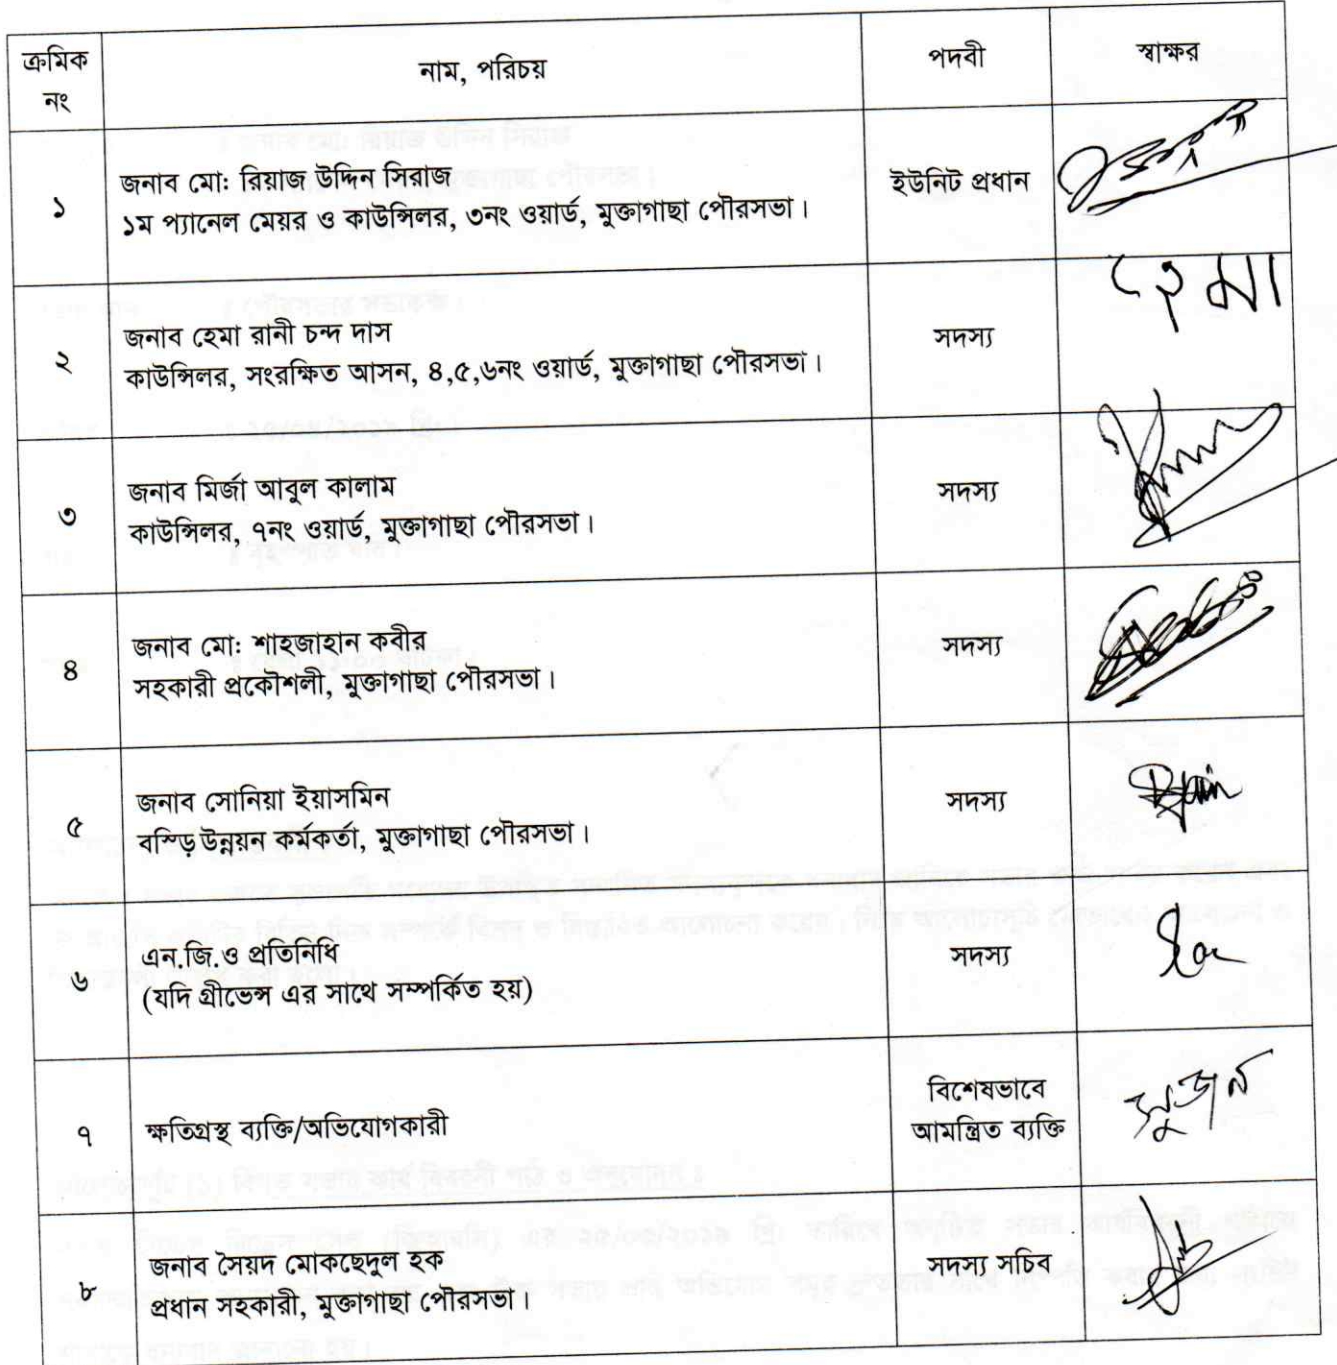 ক্রমিক নং
নাম, পরিচয়
পদবী
স্বাক্ষর
১
জনাব মো: রিয়াজ উদ্দিন সিরাজ
১ম প্যানেল মেয়র ও কাউন্সিলর, ৩নং ওয়ার্ড, মুক্তাগাছা পৌরসভা।
ইউনিট প্রধান
২
জনাব হেমা রানী চন্দ দাস
কাউন্সিলর, সংরক্ষিত আসন, ৪,৫,৬নং ওয়ার্ড, মুক্তাগাছা পৌরসভা।
সদস্য
হেমা
৩
জনাব মির্জা আবুল কালাম
কাউন্সিলর, ৭নং ওয়ার্ড, মুক্তাগাছা পৌরসভা।
সদস্য
৪
জনাব মো: শাহজাহান কবীর
সহকারী প্রকৌশলী, মুক্তাগাছা পৌরসভা।
সদস্য
৫
জনাব সোনিয়া ইয়াসমিন
বস্ড়ি উন্নয়ন কর্মকর্তা, মুক্তাগাছা পৌরসভা।
সদস্য
৬
এন.জি.ও প্রতিনিধি
(যদি গ্রীভেন্স এর সাথে সম্পর্কিত হয়)
সদস্য
৭
ক্ষতিগ্রস্থ ব্যক্তি/অভিযোগকারী
বিশেষভাবে
আমন্ত্রিত ব্যক্তি
সুজন
৮
জনাব সৈয়দ মোকছেদুল হক
প্রধান সহকারী, মুক্তাগাছা পৌরসভা।
সদস্য সচিব